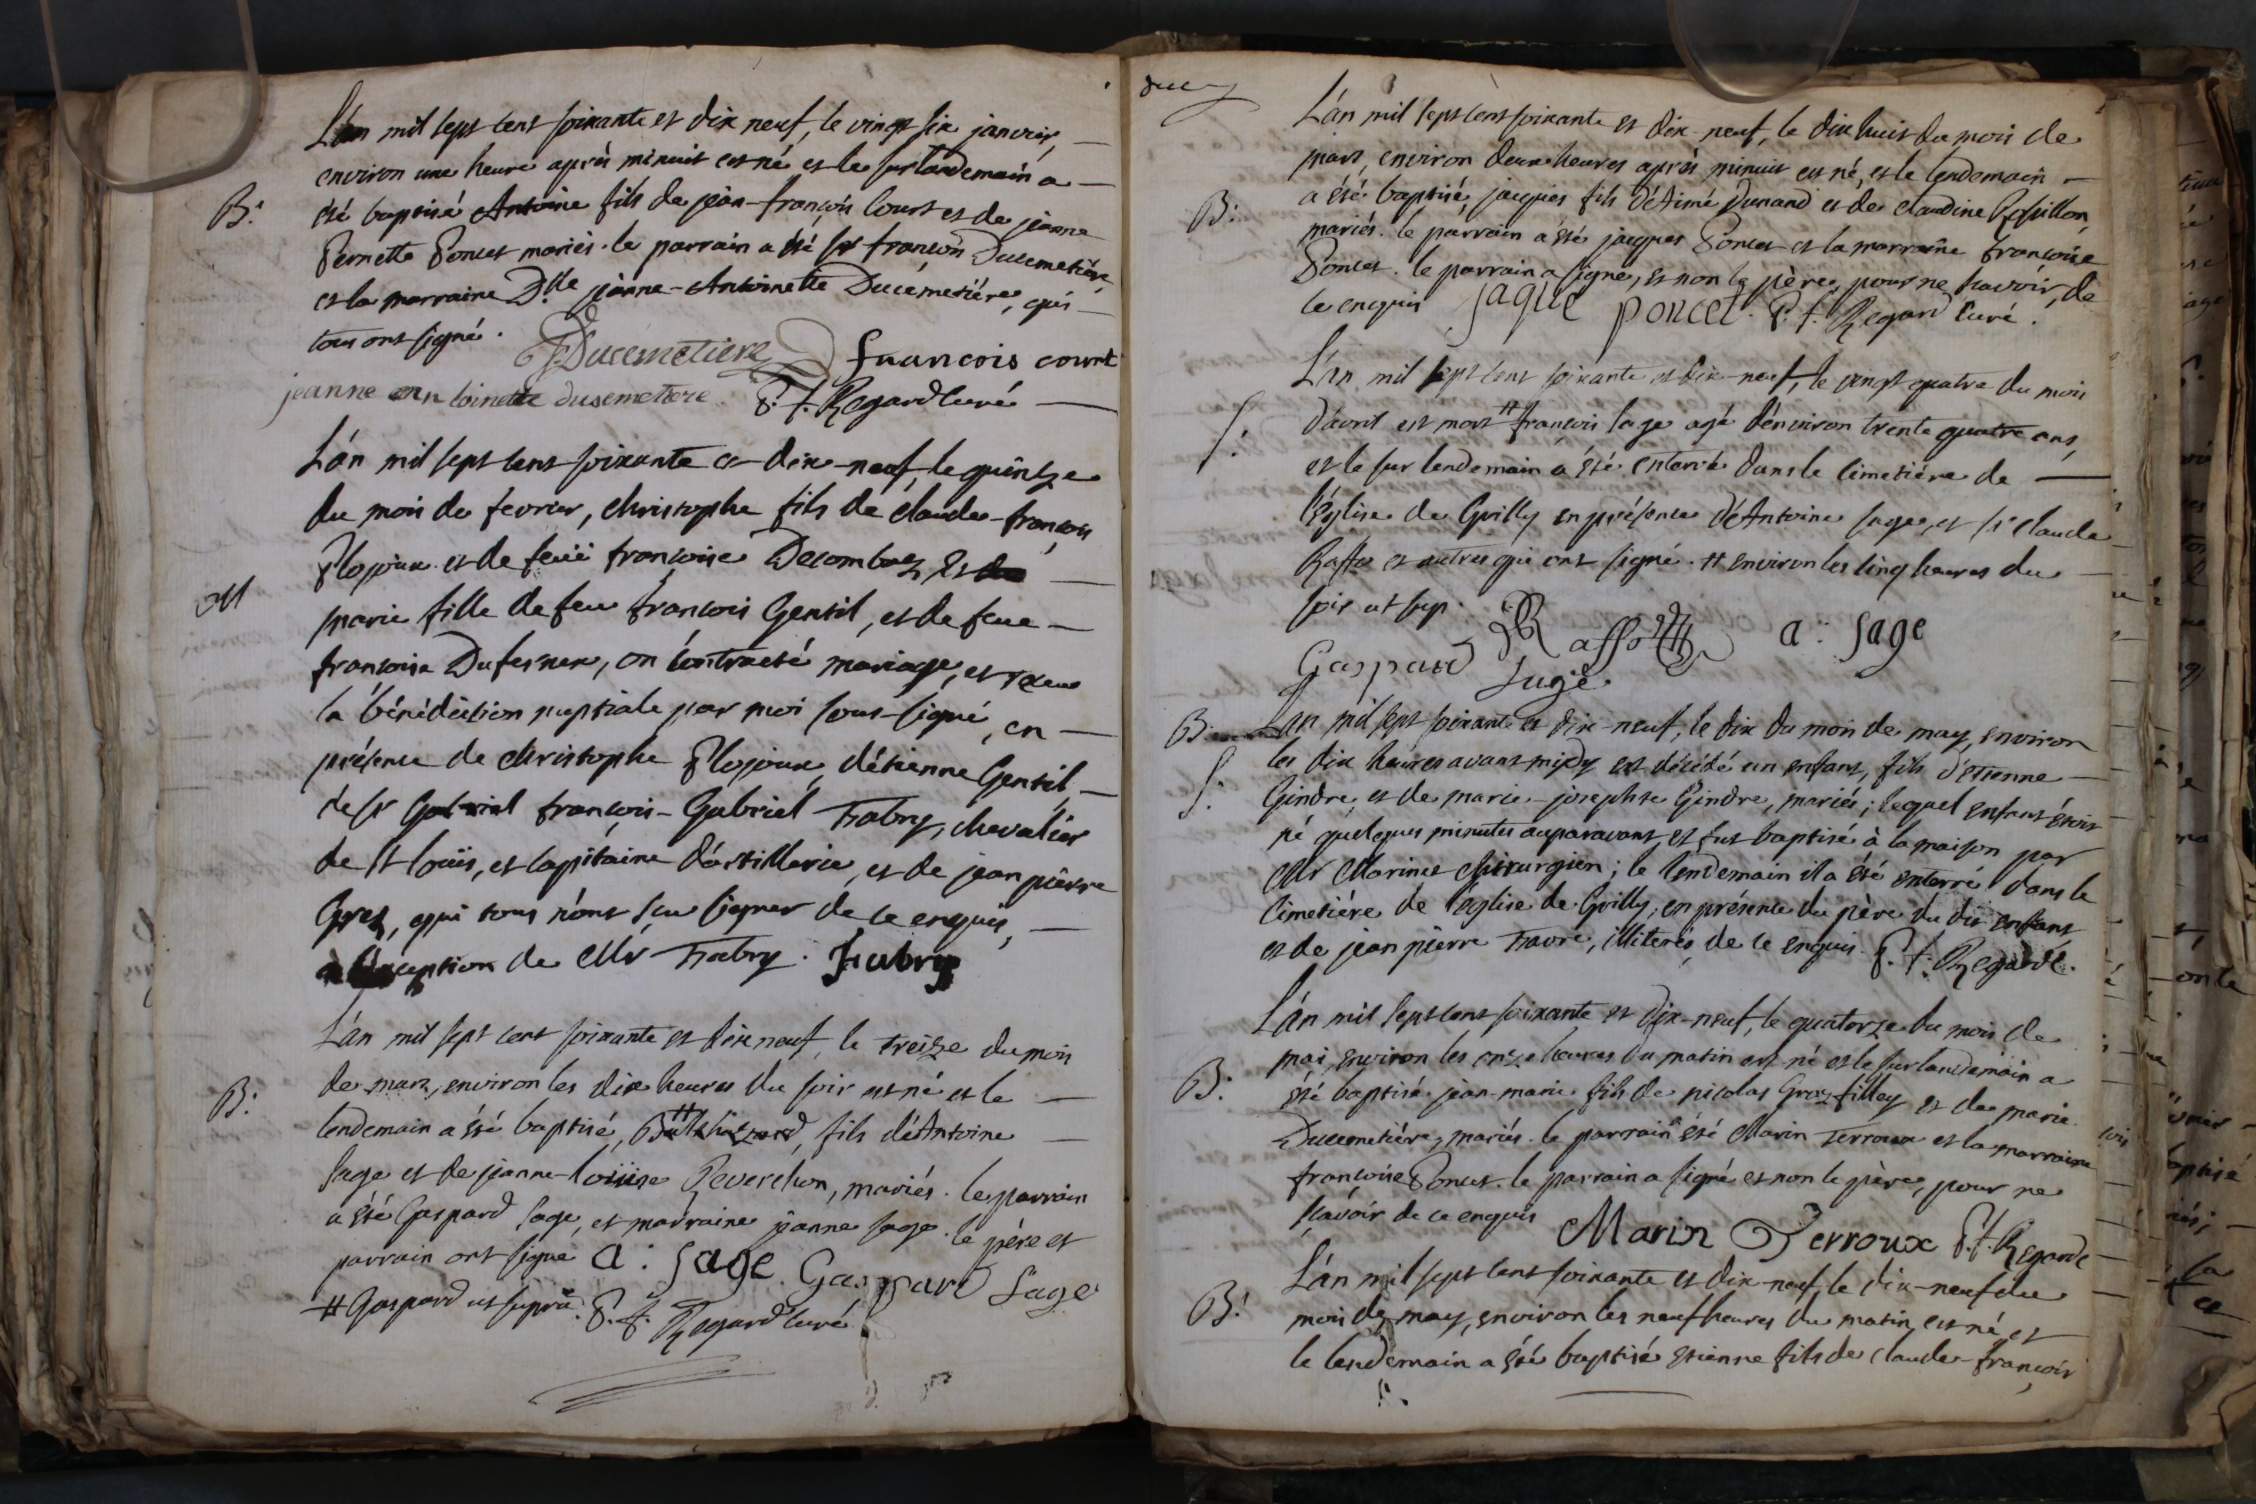 L'an mil sept cent soixante et dix neuf, le vingt six janvier,
environ une heure après minuit est né et le surlandemain a
B: été baptisé Antoine fils de jean-françois Court et de jeanne
Pernette Poncet mariés. le parrain a été sr françois Ducemetière,
et la marraine Dlle jeanne-Antoinette Ducemetiére, qui
tous ont signé.
Ducemetiere francois court
jeanne antoinette dusemetiere P. f. Regard Curé
L'an mil sept cent soixante et dix-neuf, le quintze
du mois de fevrier, christophe fils de claude-françois
Plojoux et de feüe françoise Decombaz, et
M marie fille de feu françois Gentil, et de feue
francoise Dufesnex, on contracté mariage, et receu
la bénédiction nuptiale par moi sous-signé, en
présence de christophe Plojoux, d'étienne Gentil,
de sr françois-Gabriel Fabry, chevalier
de st Loüis, et Capitaine d'artillerie, et de jean pierre
Grez, qui tous n'ont sçu signer de ce enquis,
a l'exception de Mr Fabry. Fabry
L'an mil sept cent soixante et dix neuf, le treize du mois
de mars, environ les dix heures du soir est né et le
B: lendemain a été baptisé, # fils d'Antoine
Sage et de jeanne-loüise Reverchon, mariés. le parrain
a été Gaspard Sage, et marraine jeanne Sage. le père et
parrain ont signé a: Sage. Gaspard Sage
# Gaspard ut supra. P. f. Regard Curé
duc
L'an mil sept cent soixante et dix-neuf, le dix huit du mois de
mars, environ deux heures après minuit est né, et le lendemain
B: a été baptisé, jacques fils d'Aimé Dunand et de claudine Rosillon,
mariés. le parrain a été jacques Poncet et la marraine françoise
Poncet. le parrain a signé, et non le père, pour ne sçavoir, de
ce enquis jaque poncet. P. f. Regard Curé.
L'an mil sept cent soixante et dix-neuf, le vingt quatre du mois
S: d'avril est mort # françois Sage agé d'environ trente quatre ans,
et le sur lendemain a été enterré dans le Cimetiére de
l'Église de Grilly en présence d'Antoine Sage, et sr Claude
Raffo et autres qui ont signé. # environ les cinq heures du
soir ut sup.
Raffo a: Sage
Gaspard Sage.
B: L'an mil sept soixante et dix-neuf, le dix du mois de may, environ
S: les dix heures avant midy est décédé un enfant, fils d'etienne
Gindre, et de marie-josephte Gindre, mariés; lequel enfant étoit
né quelques minutes auparavant, et fut baptisé à la maison par
Mr Marinet chirurgien; le lendemain il a été enterré dans le
Cimetiére de l'église de Grilly, en présence du père du dit enfant
et de jean pierre Favre, illiterés, de ce enquis. P. f. Regard C.
L'an mil sept cent soixante et dix-neuf, le quatorze du mois de
mai, environ les onze heures du matin est né et le surlandemain a
B: été baptisé jean-marie fils de nicolas Grosfilley et de marie
Ducemetiére, mariés. le parrain a été Marin Terroux et la marraine
françoise Poncet. le parrain a signé et non le père, pour ne
sçavoir de ce enquis Marin Terroux P. f. Regard C
L'an mil sept cent soixante et dix-neuf, le dix-neuf du
B: mois de may, environ les neuf heures du matin, est né et
le lendemain a été baptisé etienne fils de claude-françois